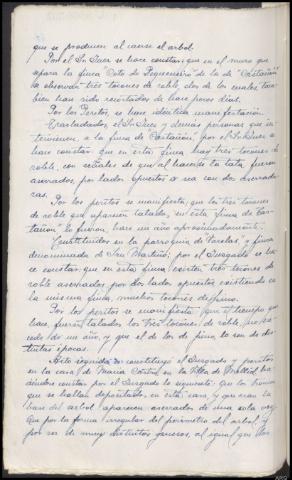 que se producen al caerse el arbol.
Por el Sr Juez se hace constar: que en el muro que
separa la finca "Coto de Pequeneiro" de la de "Castañón"
se observan tres tocones de roble, dos de los cuales tam-
bien han sido recortados de hace pocos dias.
Por los Peritos, se hace identica manifestación.
Trasladados, el Sr Juez y demás personas que in-
tervienen, a la finca de Castañón, por el Sr Juez se
hace constar que en esta finca hay tres tocones de
roble, con señales de que al hacerse la tala, fueron
aserrados, por lados opuestos o sea con dos aserradu-
ras.
Por los peritos se manifiesta, que los tres tocones
de roble que aparecen talados, en esta finca de Cas-
tañón lo fueron, hace un año aproximadamente.
Constituidos en la parroquia de "Varelas", y finca
denominada de San Martiño; por el Juzgado se ha-
ce constar: que en esta finca existen tres tocones de
roble aserrados por dos lados opuestos existiendo en
la misma finca, muchos tocones de pino.
Por los peritos se manifiesta: que el tiempo que
hace, fueron talados los tres tocones de roble, no ex-
cede de un año, y que el de los de pino, lo son de dis-
tintas épocas.
Acto seguido se constituyó el Juzgado y peritos
en la casa de Maria Castro en la Villa de Mellid ha-
ciendose constar por el Juzgado lo siguiente: que los
que se hallan depositados, en esta casa, y que eran la
base del arbol aparecen aserrados de una sola vez.
Que por la forma irregular del perimetro del arbol, y
por ser de muy distintos gruesos, al igual que los